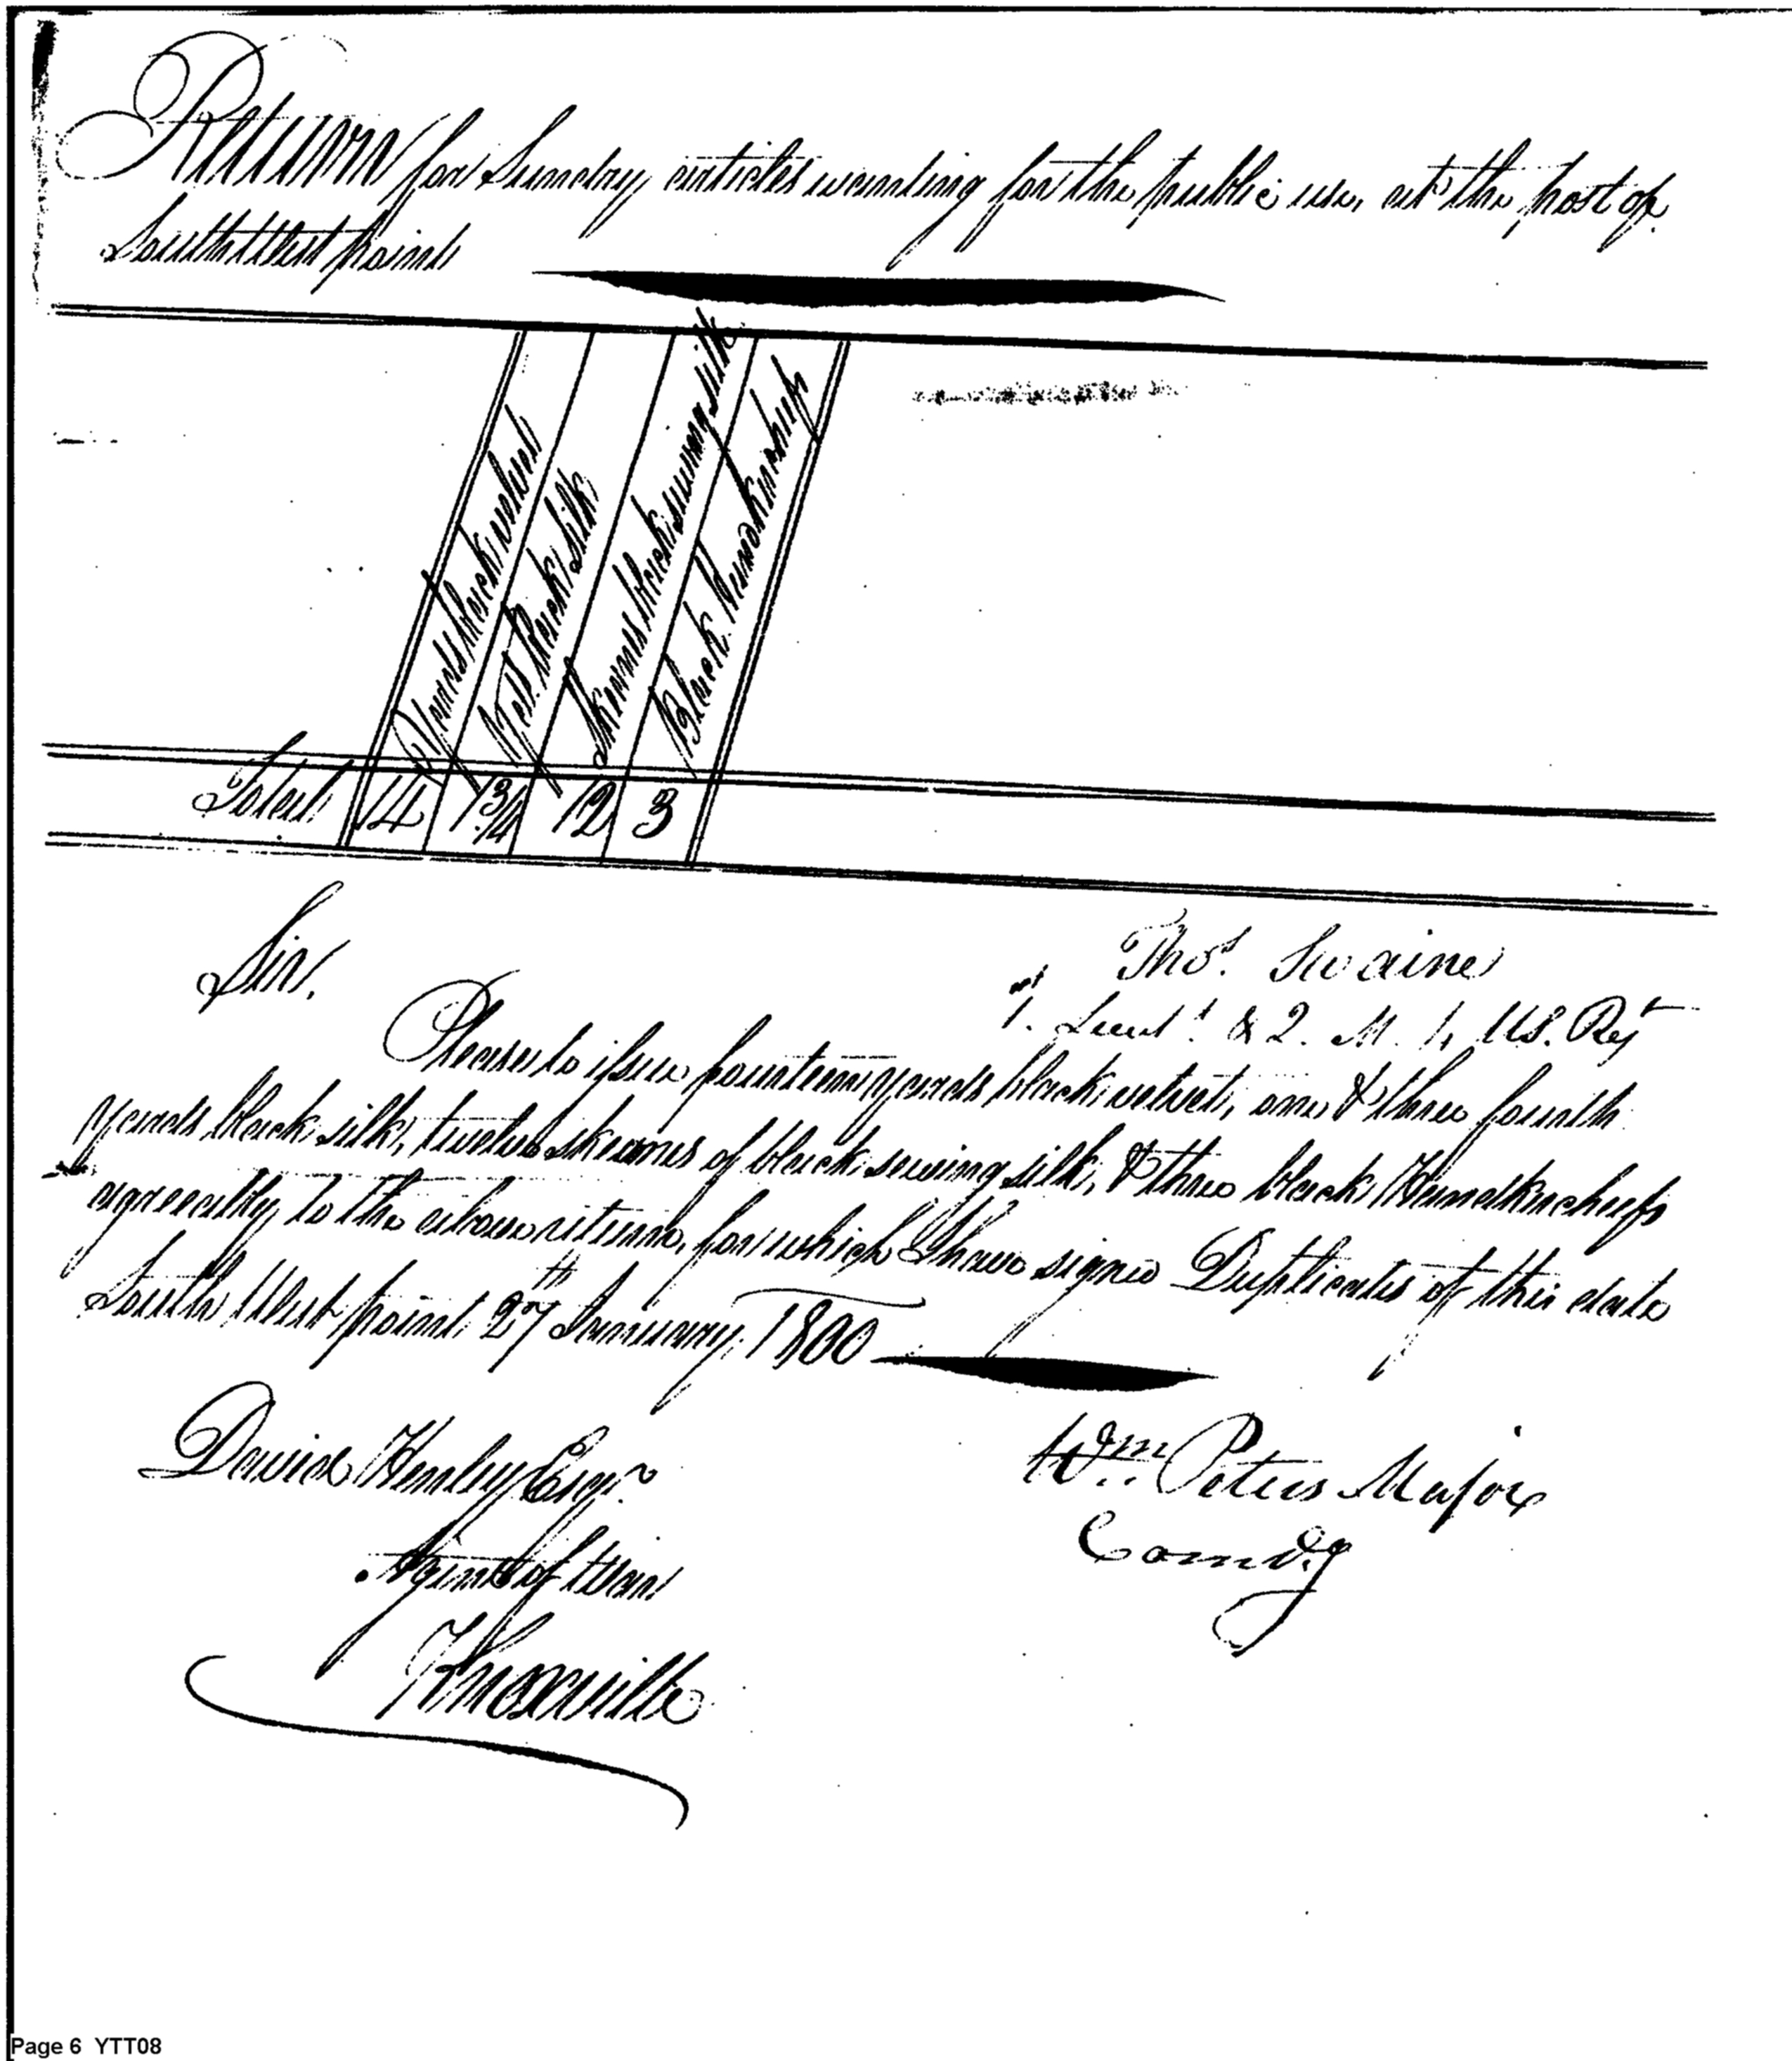 Return for Sundry articles wanting for the public use, at the post of
South West point
Yards black velvet
Yds. Black Silk
Skeans black sewing silk
Black Handkerchiefs
Total 14 1 3/4 12 3
Thos. Swaine
1. Lieut. & 2. M. 1, US. Regt
Sir,
Please to issue fourteen yards black velvet, one & three fourth
yards black silk, twelve skeanes of black sewing silk, & three black Handkerchiefs
agreeably to the above return, for which I have signed Duplicates of this date
South West point 27th January 1800
Wm. Peters Major
Comdg
David Henley Esqr.
Agent of War
Knoxville
Page 6 YTT08